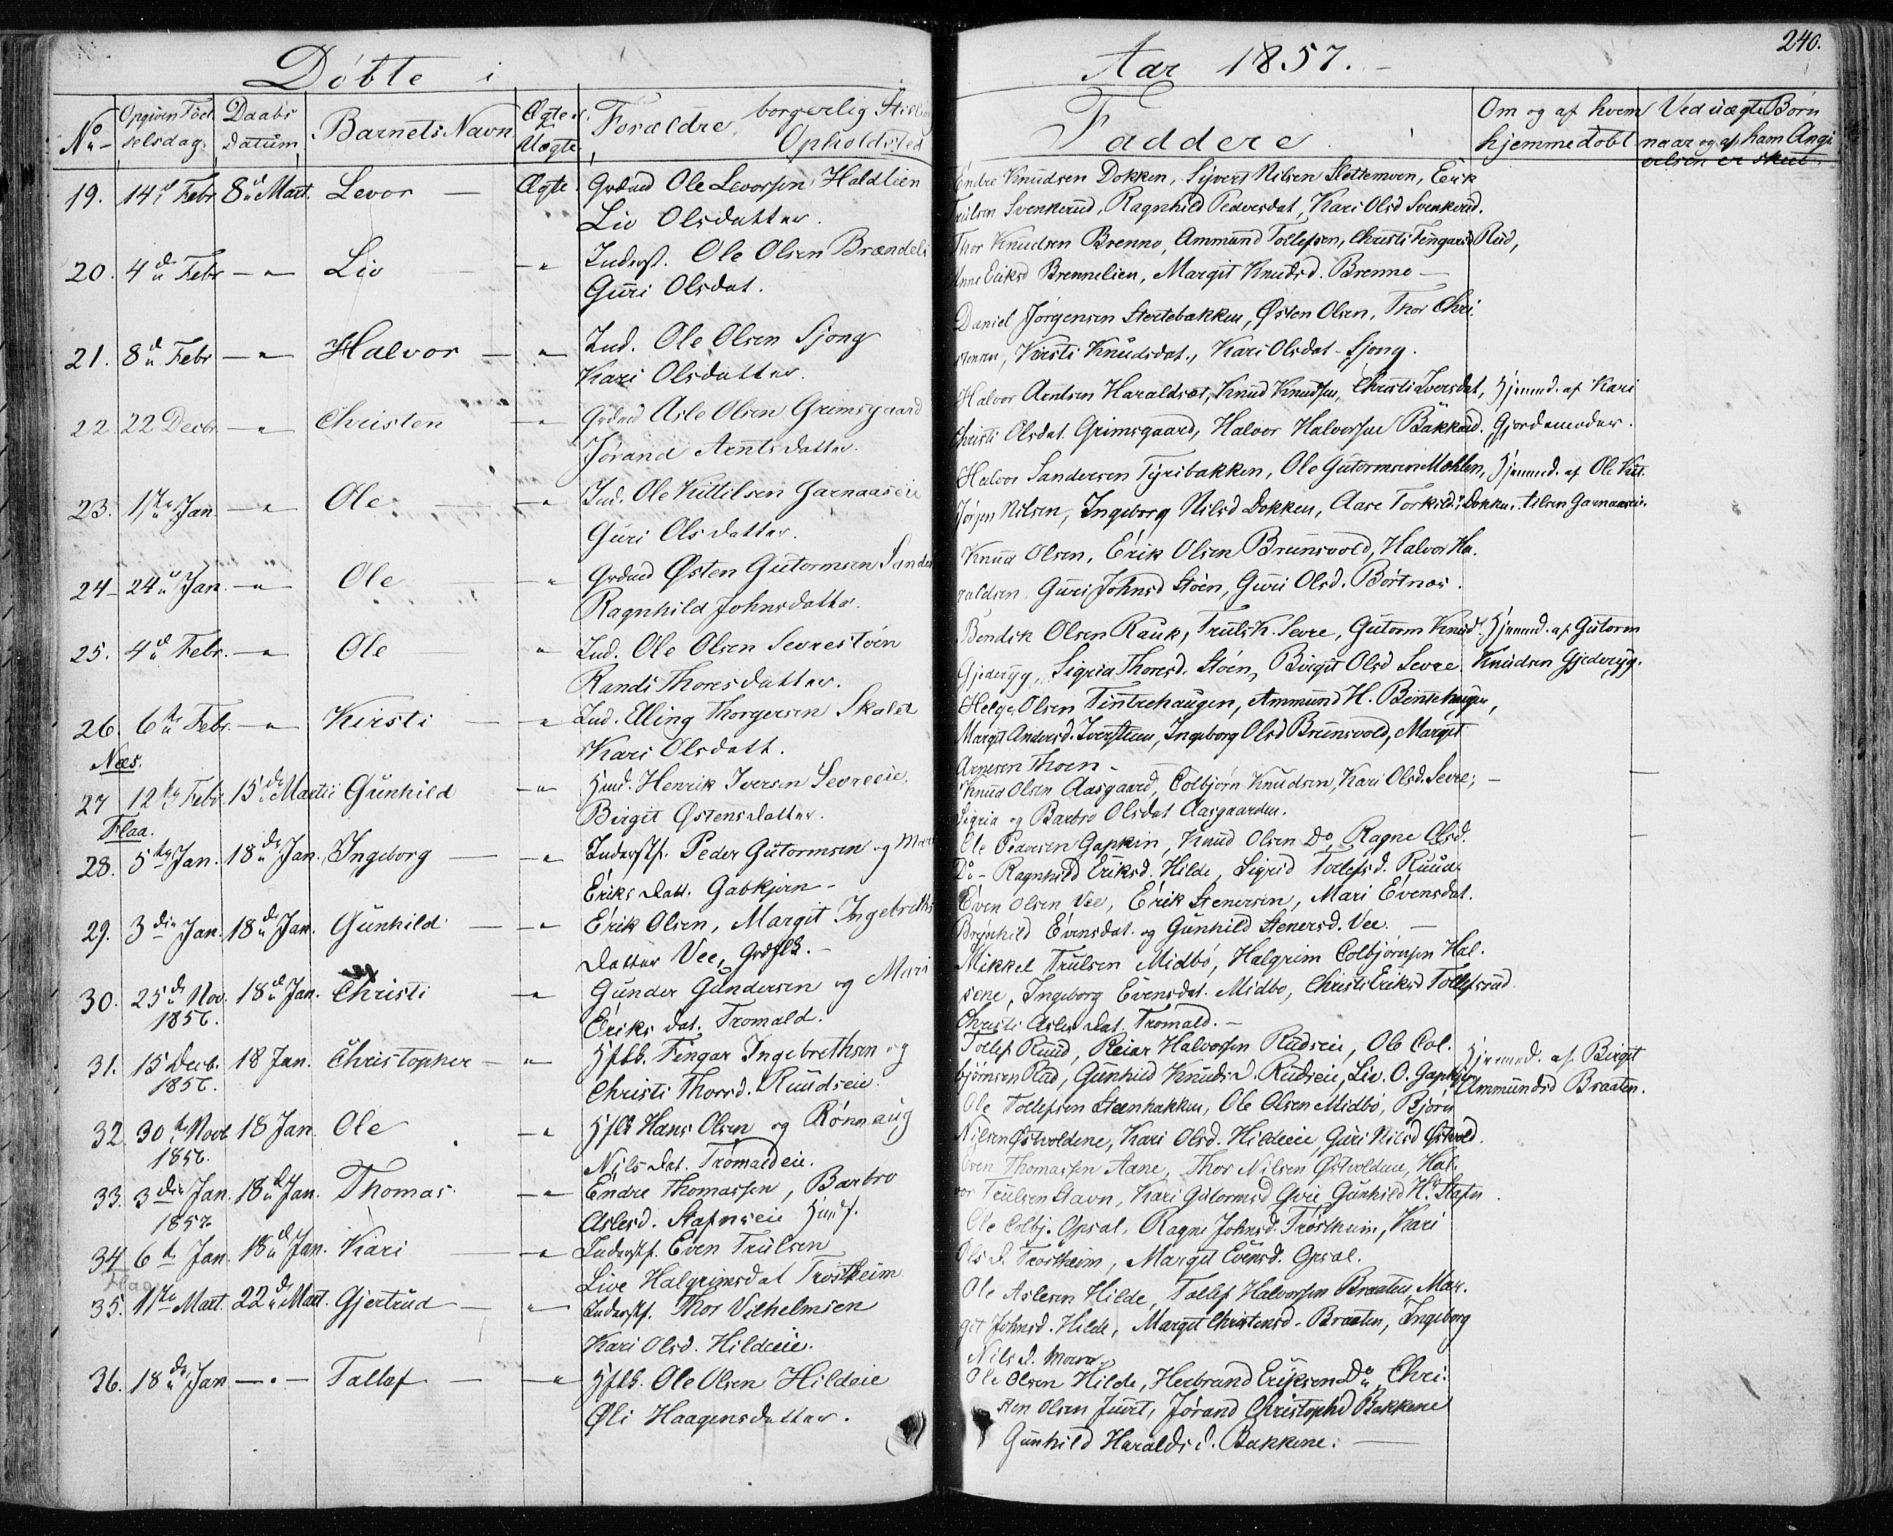 240.
Döbte i Aar 1857.
No Opgiven Födselsdag. Daabs Datum Barnets Navn Ægte el. Uægte Forældre, borgerlig Stilling Opholdsted
Faddere Om og af hvem hjemmedöbt Ved uægte Börn naar og af ham Angivelsen er skeet.
19. 14d Febr 8de Mart. Levor — Ægte Grdmd Ole Levorsen Haldlien
Liv Olsdatter.
Endre Knudsen Dokken, Syvert Nilsen Slettemoen, Erik
Trulsen Svenkerud, Ragnhild Pedersdat, Kari Olsd Svenkerud.
20. 4de Febr — " — Liv — " Inderst. Ole Olsen Brændeli
Guri Olsdat.
Thor Knudsen Brenno, Ammund Tollefsen, Christi Fingarsd Rud,
Anne Eriksd Brennelien, Margit Knudsd. Brenno —
21. 8de Febr — " — Halvor — " Ind. Ole Olsen Sjong
Kari Olsdatter.
Daniel Jörgensen Stertebakken, Østen Olsen, Thor Chri
stensen, Kirsti Knudsdat., Kari Olsdat Sjong.
22. 22 Decbr — " — Christen — " Grdmd Asle Olsen Grimsgaard
Jörand Arntsdatter.
Halvor Arntsen Haraldset, Knud Knudsen, Christi Iversdat, Hjemmd. af Kari
Christi Olsdat. Grimsgaard, Halvor Halvorsen Bakkerud. Gjordemoder.
23. 17te Jan. — " — Ole — " Ind. Ole Kittilsen Garnaaseie
Guri Olsdatter.
Halvor Sandersen Tyribakken, Ole Gutormsen Mæhlen, Hjemmd. af Ole Kit
Jörgen Nilsen, Ingeborg Nilsd Dokken, Aase Torkildsd Dokken. tilsen Garnaaseie.
24 — 24de Jan. — " — Ole — " Grdmd Østen Gutormsen Sander
Ragnhild Johnsdatter.
Knud Olsen, Erik Olsen Brunsvold, Halvor Ha
raldsen Guri Johnsd Stöen, Guri Olsd. Börtnæs.
25. 4de Febr. — " — Ole " Ind. Ole Olsen Sevrestöen
Randi Thoresdatter.
Bendik Olsen Rauk, Truls K. Sevre, Gutorm Knud. Hjemmd. af Gutorm
Gjederyg, Sigria Thoresd. Stöen, Birgit Olsd Sevre. Knudsen Gjederyg.
26. 6te Febr. — " — Kirsti — " Ind. Elling Thorgersen Skalet
Kari Olsdatt.
Helge Olsen Tintrehaugen, Ammund H. Bentehaugen,
Margit Andersd. Iverstuen, Ingeborg Olsd Brunsvold, Margit
Arnesen Thoen —
Næs.
27 12te Febr. 15de Martii Gunhild — " Husmd. Henrik Iversen Sevreeie.
Birgit Østensdatter.
Knud Olsen Aasgaard, Colbjörn Knudsen, Kari Olsd. Sevre, —
Sigria og Barbro Olsdat Aasgaarden.
Flaa.
28. 5te Jan. 18de Jan. Ingeborg — " Inderstf. Peder Gutormsen og Mari
Eriksdatt. Gabkjern —
Ole Pedersen Gapkin, Knud Olsen Do, Ragne Olsd.
Do — Ragnhild Eriksd. Hilde, Sigrid Tollefsd. Ruud.
29. 3die Jan. 18de Jan. Gunhild — " Erik Olsen, Margit Ingebreths
datter Vee, Grdflk. —
Even Olsen Vee, Erik Stenersen, Mari Evensdat.
Brynhild Evensdat. og Gunhild Stenersd. Vee. —
30. 25de Nov. 1856. 18de Jan. Christi — " Gunder Gundersen og Mari
Eriksdat. Tromald.
Mikkel Trulsen Midbö, Halgrim Colbjörnsen Hal.
sene, Ingeborg Evensdat. Midbö, Christi Eriksd Tollefsrud
Christi Aslesdat. Tromald. —
31. 15 Decb. 1856. 18 Jan. Christopher — " Hflb. Fingar Ingebrethsen og
Christi Thorsd. Ruudseie.
Tollef Ruud, Reiar Halvorsen Rudseie, Ole Col. Hjemmd. af Birgit
björnsen Rud, Gunhild Knudsd. Rudseie, Liv. O. Gapkin Ammundsd Braaten.
32. 30te Novb 1856. 18 Jan. Ole — " Hflb Hans Olsen og Rönnaug
Nilsdat. Tromaldeie.
Ole Tollefsen Steenbakken, Ole Olsen Midbö, Björn
Nilsen Østvoldene, Kari Olsd. Hildeeie, Guri Nilsd Østvold.
33. 3die Jan. 1857. 18de Jan. Thomas — " Endre Thomassen, Barbro
Aslesd. Stafnseie Husf.
Even Thomassen Aane, Thor Nilsen Østvoldene, Hal.
vor Trulsen Stavn, Kari Gutormsd Gvie, Gunhild Hd. Stafn.
34 6te Jan. 18de Jan. Kari — " Inderstf. Even Trulsen
Live Halgrimsdat Trostheim
Ole Colbj. Opsal, Ragne Johnsd. Tröstheim, Kari
Olsd. Trostheim, Margit Evensd. Opsal.
35. 11te Mart. 22de Mart. Gjertrud — " Inderstf. Thor Vilhelmsen
Kari Olsd. Hildeeie.
Ole Aslesen Hilde, Tollef Halvorsen Braaten, Mar.
git Johnsd. Hilde, Margit Christensd. Braaten, Ingeborg
Nilsd. Moen.
36. 18de Jan — " — Tollef — " Hflb. Ole Olsen Hildeie
Øli Haagensdatter.
Ole Olsen Hilde, Herbrand Eriksen Do, Chri:
sten Olsen Juvet, Jörand Christophd Bakkene
Gunhild Haraldsd. Bakkene. —